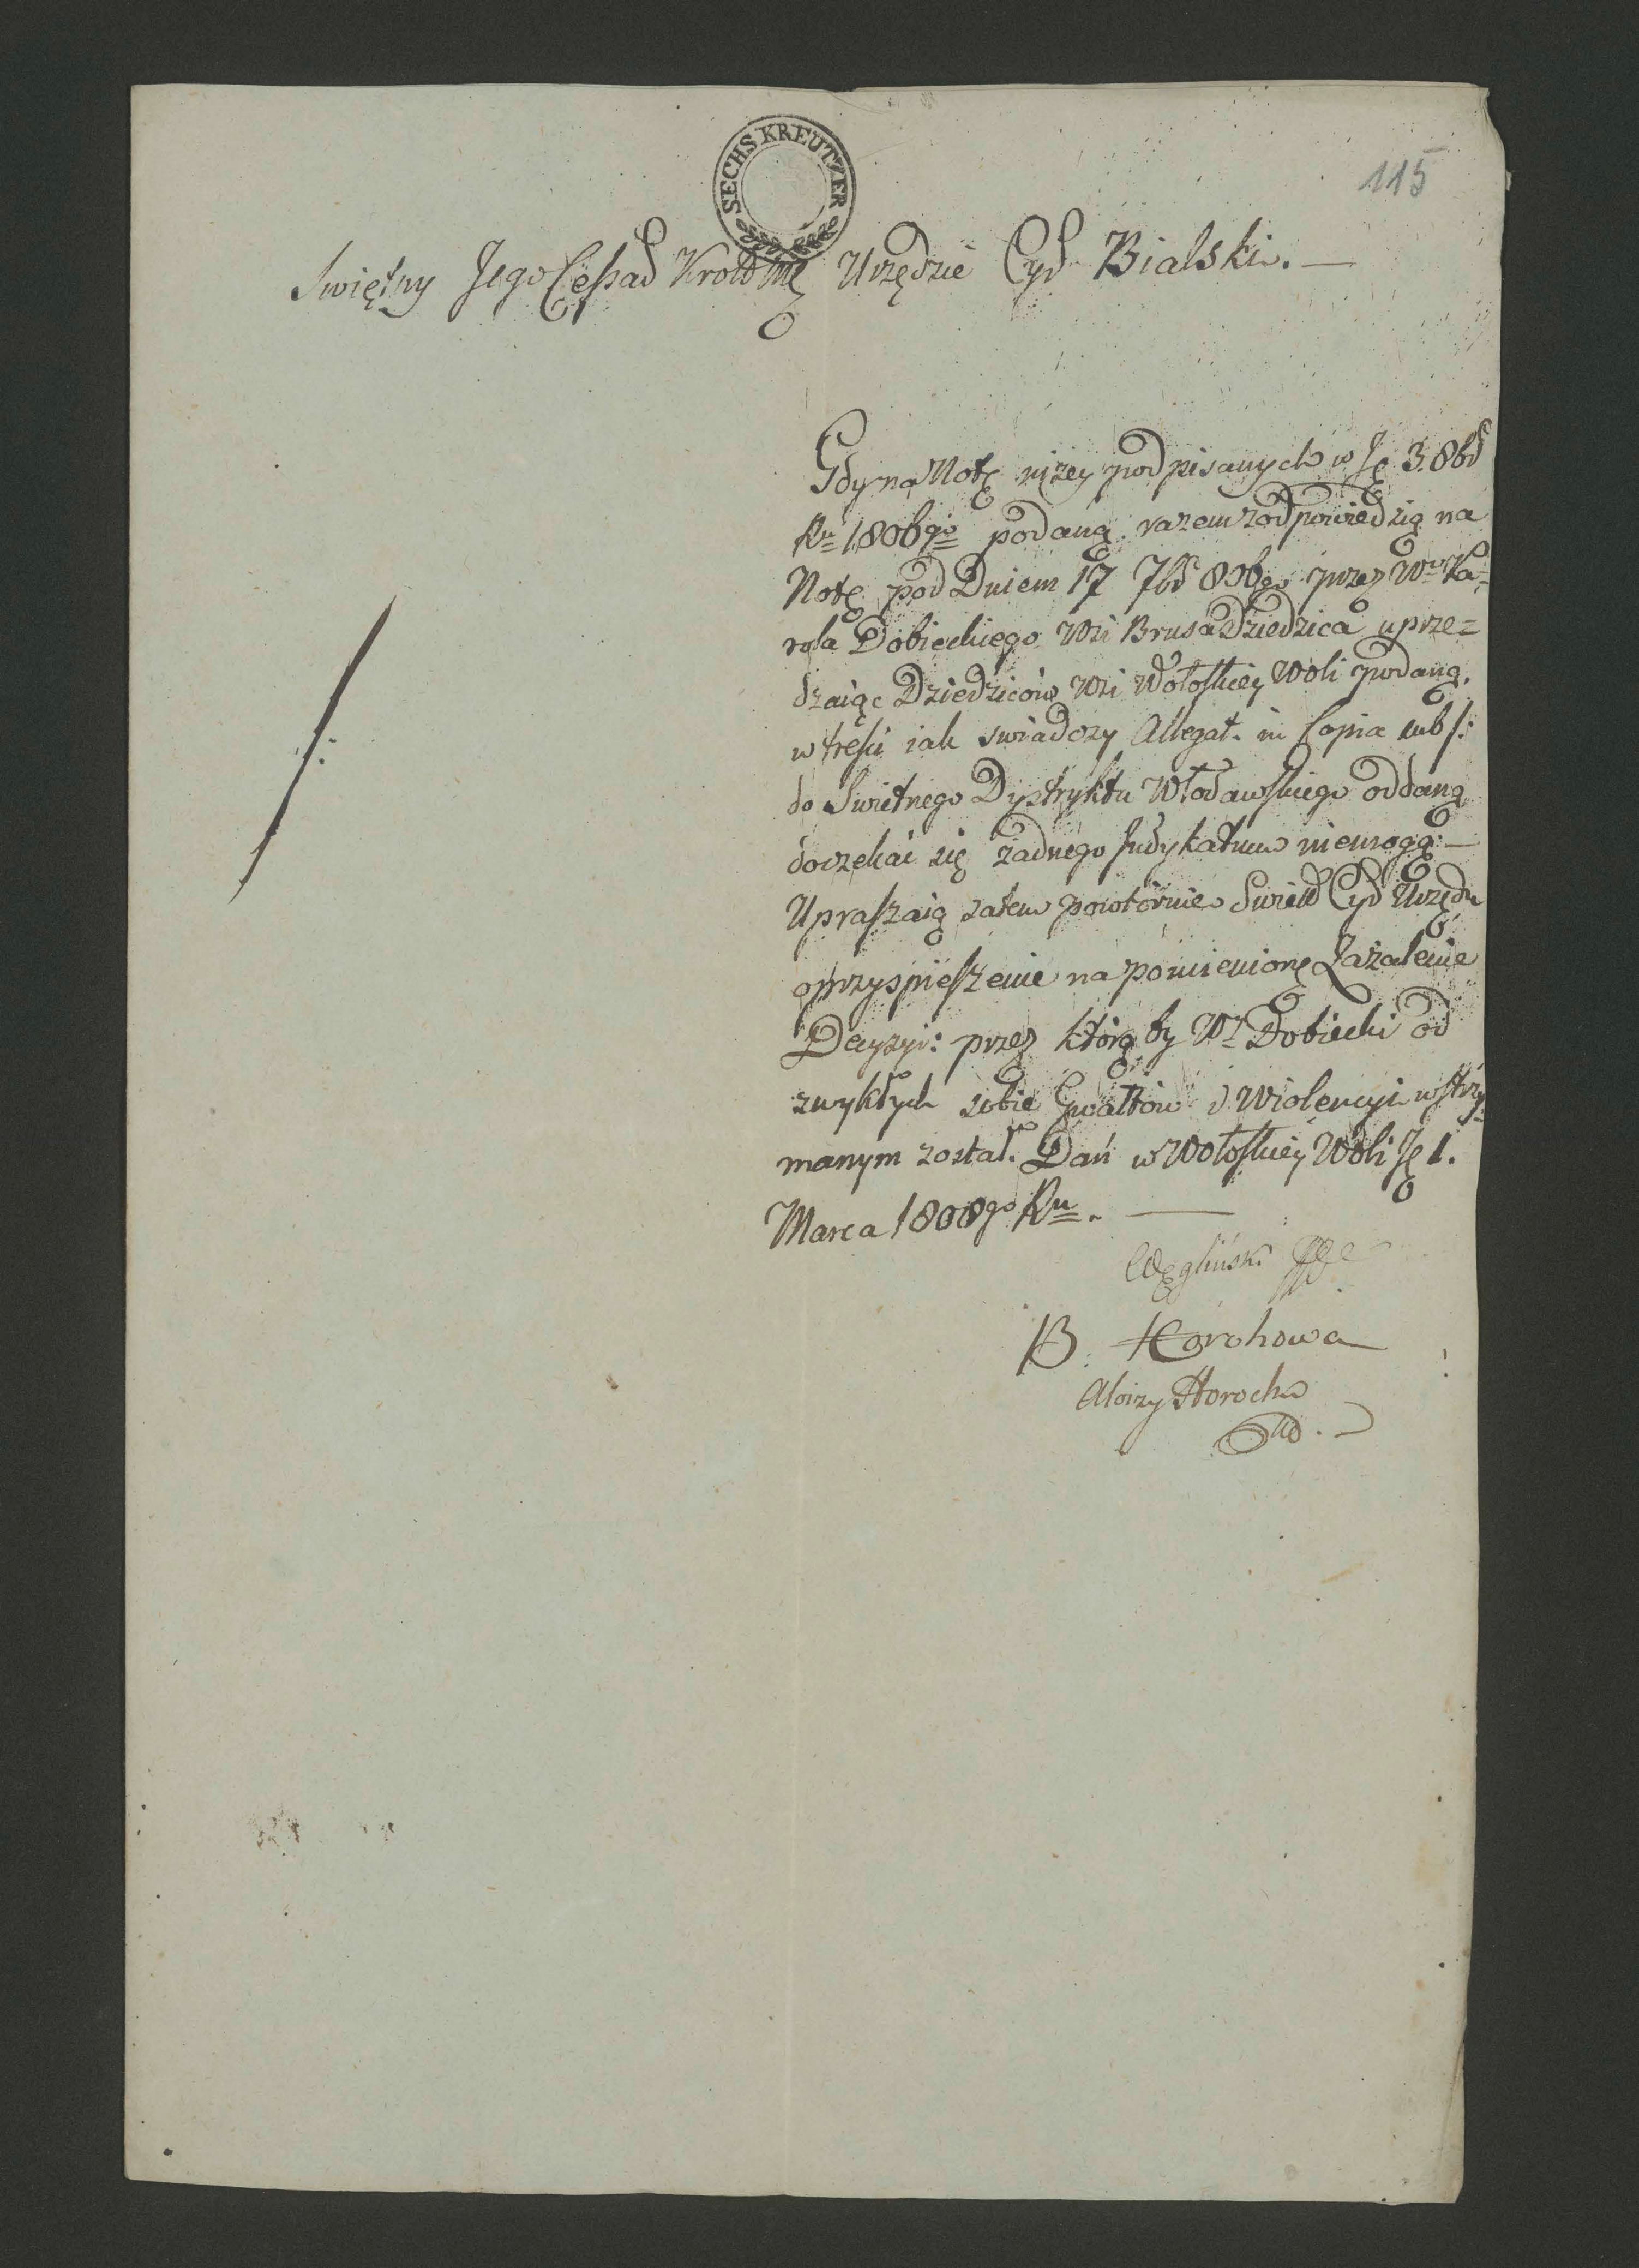 SECHS KREUTZER
115
Swiętny Jego Ceſsad Krold Mę Urzędzie Cyd Bialski. —
Gdy na Notę niżey podpisanych w Ję 3. 8bd
Ru 1806go podaną razem z odpowiedzią na
Notę pod Dniem 17 7bd 806go przez Wo Ka=
rola Dobieckiego Wsi Brusa Dziedzica uprze=
dzaiąc Dziedziców Wsi Wołoſkiey Woli podaną,
w treſci iak swiadczy Allegat. in Copia sub /:
do Swietnego Dystryktu Włodawſkiego oddaną
doczekać się żadnego Judykatum niemogą: —
Upraſzaią zatem powtórnie Swied Cyd Urzędu
o przyspieſzenie na pomienionę Zażalenie
Decyzyi: przez którą by Wy Dobiecki od
zwykłych sobie Gwałtów i Wiolencyi wstrzy=
manym został. Dań w Wołoſkiey Woli Ję 1.
Marca 1808go Ru. —
/:
Węgliński
B. Horohowa
Aloizy Horoch